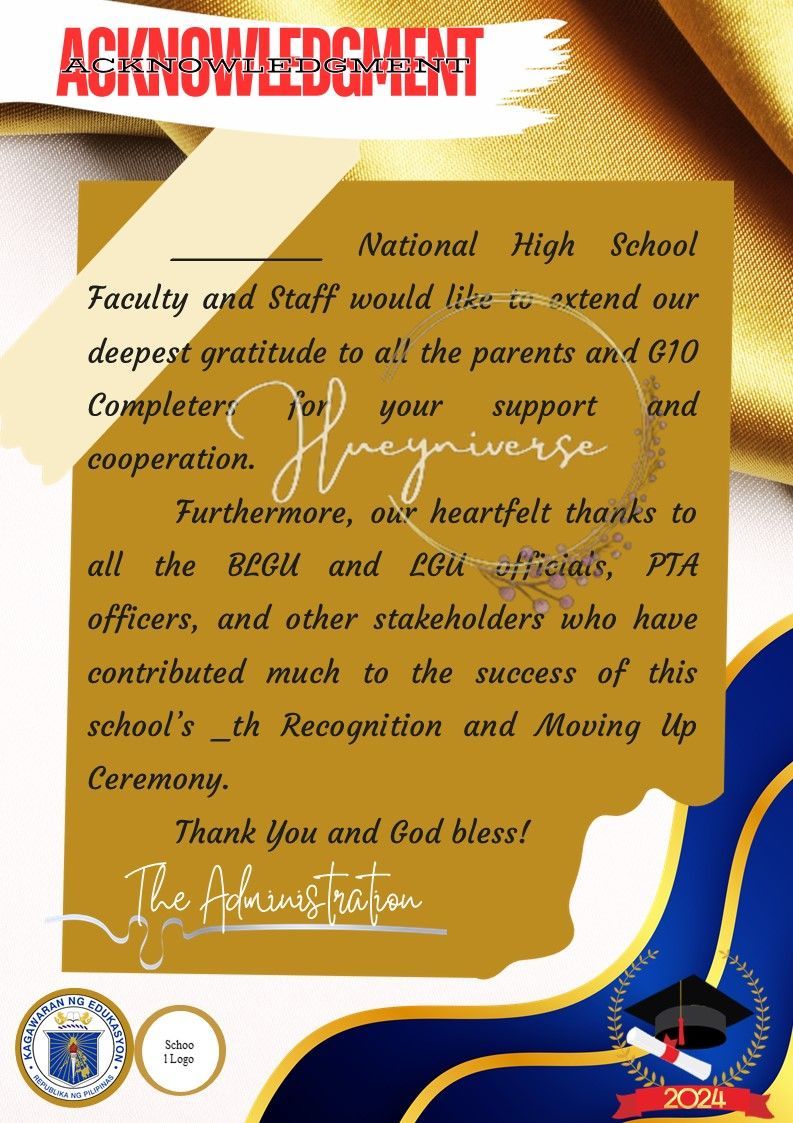 ACKNOWLEDGMENT
ACKNOWLEDGMENT
__________ National High School
Faculty and Staff would like to extend our
deepest gratitude to all the parents and G10
Completers for your support and
cooperation.
Hueyniverse
Furthermore, our heartfelt thanks to
all the BLGU and LGU officials, PTA
officers, and other stakeholders who have
contributed much to the success of this
school's _th Recognition and Moving Up
Ceremony.
Thank You and God bless!
The Administration
KAGAWARAN NG EDUKASYON
REPUBLIKA NG PILIPINAS
Schoo
l Logo
2024